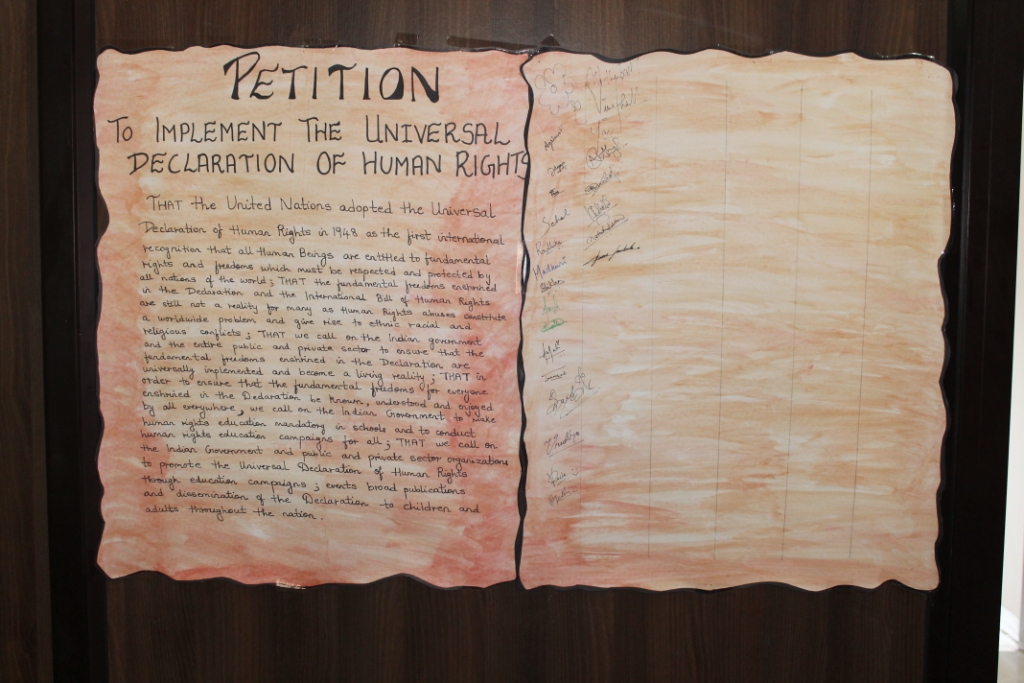 PETITION
TO IMPLEMENT THE UNIVERSAL
DECLARATION OF HUMAN RIGHTS
THAT the United Nations adopted the Universal
Declaration of Human Rights in 1948 as the first international
recognition that all Human Beings are entitled to fundamental
rights and freedoms which must be respected and protected by
all nations of the world; THAT the fundamental freedoms enshrined
in the Declaration and the International Bill of Human Rights
are still not a reality for many as Human Rights abuses constitute
a worldwide problem and give rise to ethnic racial and
religious conflicts; THAT we call on the Indian government
and the entire public and private sector to ensure that the
fundamental freedoms enshrined in the Declaration are
universally implemented and become a living reality; THAT in
order to ensure that the fundamental freedoms for everyone
enshrined in the Declaration be known, understood and enjoyed
by all everywhere, we call on the Indian Government to make
human rights education mandatory in schools and to conduct
human rights education campaigns for all; THAT we call on
the Indian Government and public and private sector organizations
to promote the Universal Declaration of Human Rights
through education campaigns; events broad publications
and dissemination of the Declaration to children and
adults throughout the nation.